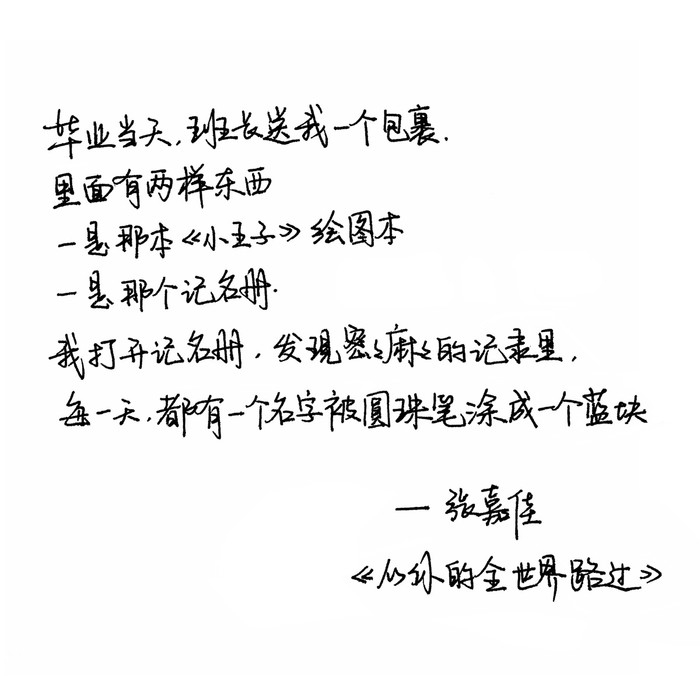 毕业当天,班长送我一个包裹.
里面有两样东西
一是那本《小王子》绘图本
一是那个记名册.
我打开记名册,发现密々麻々的记录里,
每一天,都有一个名字被圆珠笔涂成一个蓝块
— 张嘉佳
《从你的全世界路过》